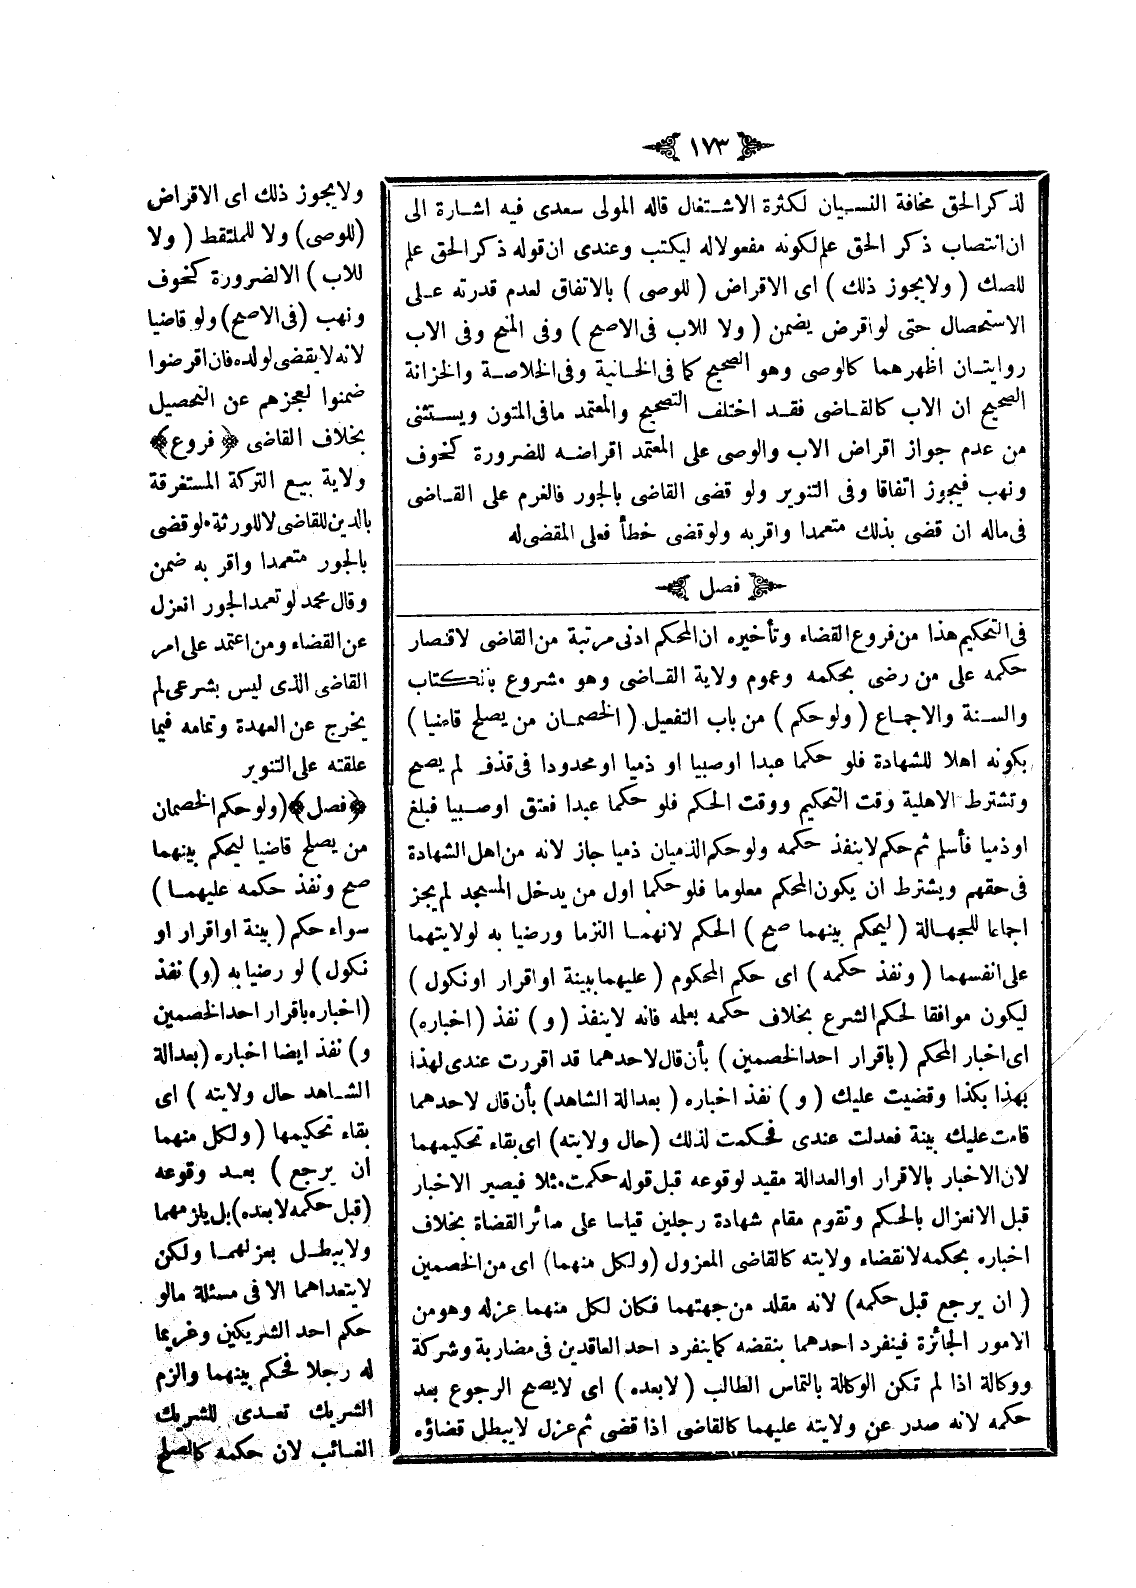 ١٧٣
لذكر الحق مخافة النسيان لكثرة الاشتغال قاله المولى سعدى فيه اشارة الى
ان انتصاب ذكر الحق علم لكونه مفعولا له ليكتب وعندى ان قوله ذكر الحق علم
للصك ( ولا يجوز ذلك ) اى الاقراض ( للوصى ) بالاتفاق لعدم قدرته على
الاستحصال حتى لو اقرض يضمن ( ولا للاب فى الاصح ) وفى المنح وفى الاب
روايتان اظهرهما كالوصى وهو الصحيح كما فى الخانية وفى الخلاصة والخزانة
الصحيح ان الاب كالقاضى فقد اختلف التصحيح والمعتمد ما فى المتون ويستثنى
من عدم جواز اقراض الاب والوصى على المعتمد اقراضه للضرورة كخوف
ونهب فيجوز اتفاقا وفى التنوير ولو قضى القاضى بالجور فالغرم على القاضى
فى ماله ان قضى بذلك متعمدا واقر به ولو قضى خطأ فعلى المقضى له
فصل
فى التحكيم هذا من فروع القضاء وتأخيره ان المحكم ادنى مرتبة من القاضى لاقتصار
حكمه على من رضى بحكمه وعموم ولاية القاضى وهو مشروع بالكتاب
والسنة والاجماع ( ولو حكم ) من باب التفعيل ( الخصمان من يصلح قاضيا )
بكونه اهلا للشهادة فلو حكما عبدا او صبيا او ذميا او محدودا فى قذف لم يصح
وتشترط الاهلية وقت التحكيم ووقت الحكم فلو حكما عبدا فعتق او صبيا فبلغ
او ذميا فأسلم ثم حكم لا ينفذ حكمه ولو حكم الذميان ذميا جاز لانه من اهل الشهادة
فى حقهم ويشترط ان يكون المحكم معلوما فلو حكما اول من يدخل المسجد لم يجز
اجماعا للجهالة ( ليحكم بينهما صح ) الحكم لانهما التزما ورضيا به لولايتهما
على انفسهما ( ونفذ حكمه ) اى حكم المحكوم ( عليهما ببينة او اقرار او نكول )
ليكون موافقا لحكم الشرع بخلاف حكمه بعلمه فانه لا ينفذ ( و ) نفذ ( اخباره )
اى اخبار المحكم ( باقرار احد الخصمين ) بأن قال لاحدهما قد اقررت عندى لهذا
بهذا بكذا وقضيت عليك ( و ) نفذ اخباره ( بعدالة الشاهد ) بأن قال لاحدهما
قامت عليك بينة فعدلت عندى فحكمت لذلك ( حال ولايته ) اى بقاء تحكيمهما
لان الاخبار بالاقرار او العدالة مقيد لوقوعه قبل قوله حكمت مثلا فيصير الاخبار
قبل الانعزال بالحكم وتقوم مقام شهادة رجلين قياسا على سائر القضاة بخلاف
اخباره بحكمه لانقضاء ولايته كالقاضى المعزول ( ولكل منهما ) اى من الخصمين
( ان يرجع قبل حكمه ) لانه مقلد من جهتهما فكان لكل منهما عزله وهو من
الامور الجائزة فينفرد احدهما بنقضه كما ينفرد احد العاقدين فى مضاربة وشركة
ووكالة اذا لم تكن الوكالة بالتماس الطالب ( لا بعده ) اى لا يصح الرجوع بعد
حكمه لانه صدر عن ولايته عليهما كالقاضى اذا قضى ثم عزل لا يبطل قضاؤه
ولا يجوز ذلك اى الاقراض
( للوصى ) ولا للملتقط ( ولا
للاب ) الا لضرورة كخوف
ونهب ( فى الاصح ) ولو قاضيا
لانه لا يقضى لولده فان اقرضوا
ضمنوا لعجزهم عن التحصيل
بخلاف القاضى ﴿ فروع ﴾
ولاية بيع التركة المستغرقة
بالدين للقاضى لا للورثة * لو قضى
بالجور متعمدا واقر به ضمن
وقال محمد لو تعمد الجور انعزل
عن القضاء ومن اعتمد على امر
القاضى الذى ليس بشرعى لم
يخرج عن العهدة وتمامه فيما
علقته على التنوير
﴿ فصل ﴾ ( ولو حكم الخصمان
من يصلح قاضيا ليحكم بينهما
صح ونفذ حكمه عليهما )
سواء حكم ( ببينة او اقرار او
نكول ) لو رضيا به ( و ) نفذ
( اخباره باقرار احد الخصمين
و ) نفذ ايضا اخباره ( بعدالة
الشاهد حال ولايته ) اى
بقاء تحكيمها ( ولكل منهما
ان يرجع ) بعد وقوعه
( قبل حكمه لا بعده ) بل يلزمهما
ولا يبطل بعزلهما ولكن
لا يتعداهما الا فى مسئلة ما لو
حكم احد الشريكين وغريما
له رجلا فحكم بينهما والزم
الشريك تعدى للشريك
الغائب لان حكمه كالصلح